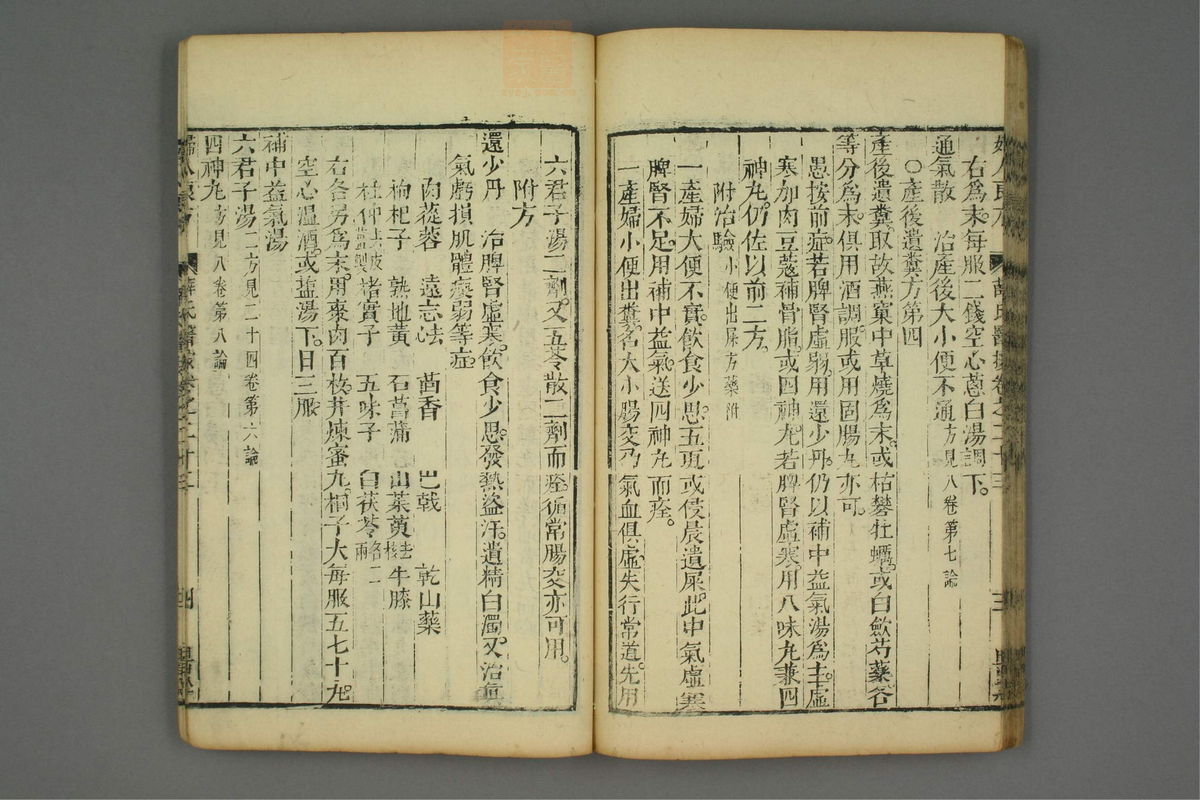 右爲末每服二錢空心蔥白湯調下
通氣散 治產後大小便不通方見八卷第七論
〇產後遺糞方第四
產後遺糞取故燕窠中草燒爲末或枯礬牡蠣或白斂芍藥各
等分爲末俱用酒調服或用固腸丸亦可
愚按前症若脾腎虛弱用還少丹仍以補中益氣湯爲主虛
寒加肉豆蔻補骨脂或四神丸若脾腎虛寒用八味丸兼四
神丸仍佐以前二方
附治驗小便出屎方藥附
一產婦大便不實飲食少思五更或侵晨遺屎此中氣虛寒
脾腎不足用補中益氣送四神丸而痊
一產婦小便出糞名大小腸交乃氣血俱虛失行常道先用
六君子湯二劑又五苓散二劑而痊循常腸交亦可用
附方
還少丹 治脾腎虛寒飲食少思發熱盜汗遺精白濁又治眞
氣虧損肌體瘦弱等症
肉蓯蓉 遠志去心 茴香 巴戟 乾山藥
枸杞子 熟地黃 石菖蒲 山茱萸去核 牛膝
杜仲去皮薑製 楮實子 五味子 白茯苓各二兩
右各另爲末用棗肉百枚并煉蜜丸桐子大每服五七十丸
空心溫酒或鹽湯下日三服
補中益氣湯
六君子湯二方見二十四卷第六論
四神丸方見八卷第八論
婦人良方
薛氏醫按卷之二十三
四